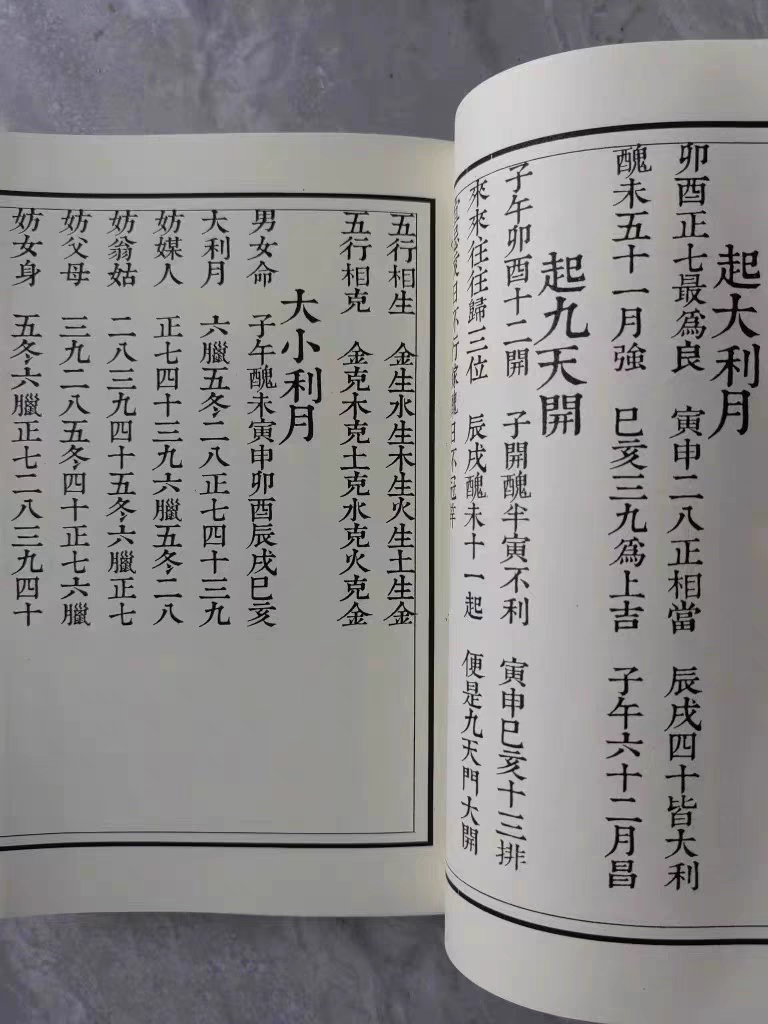 起大利月
卯酉正七最為良 寅申二八正相當 辰戌四十皆大利
醜未五十一月強 巳亥三九為上吉 子午六十二月昌
起九天開
子午卯酉十二開 子開醜半寅不利 寅申巳亥十三排
來來往往歸三位 辰戌醜未十一起 便是九天門大開
五行相生 金生水生木生火生土生金
五行相克 金克木克土克水克火克金
大小利月
男女命 子午醜未寅申卯酉辰戌巳亥
大利月 六臘五冬二八正七四十三九
妨媒人 正七四十三九六臘五冬二八
妨翁姑 二八三九四十五冬六臘正七
妨父母 三九二八五冬四十正七六臘
妨女身 五冬六臘正七二八三九四十